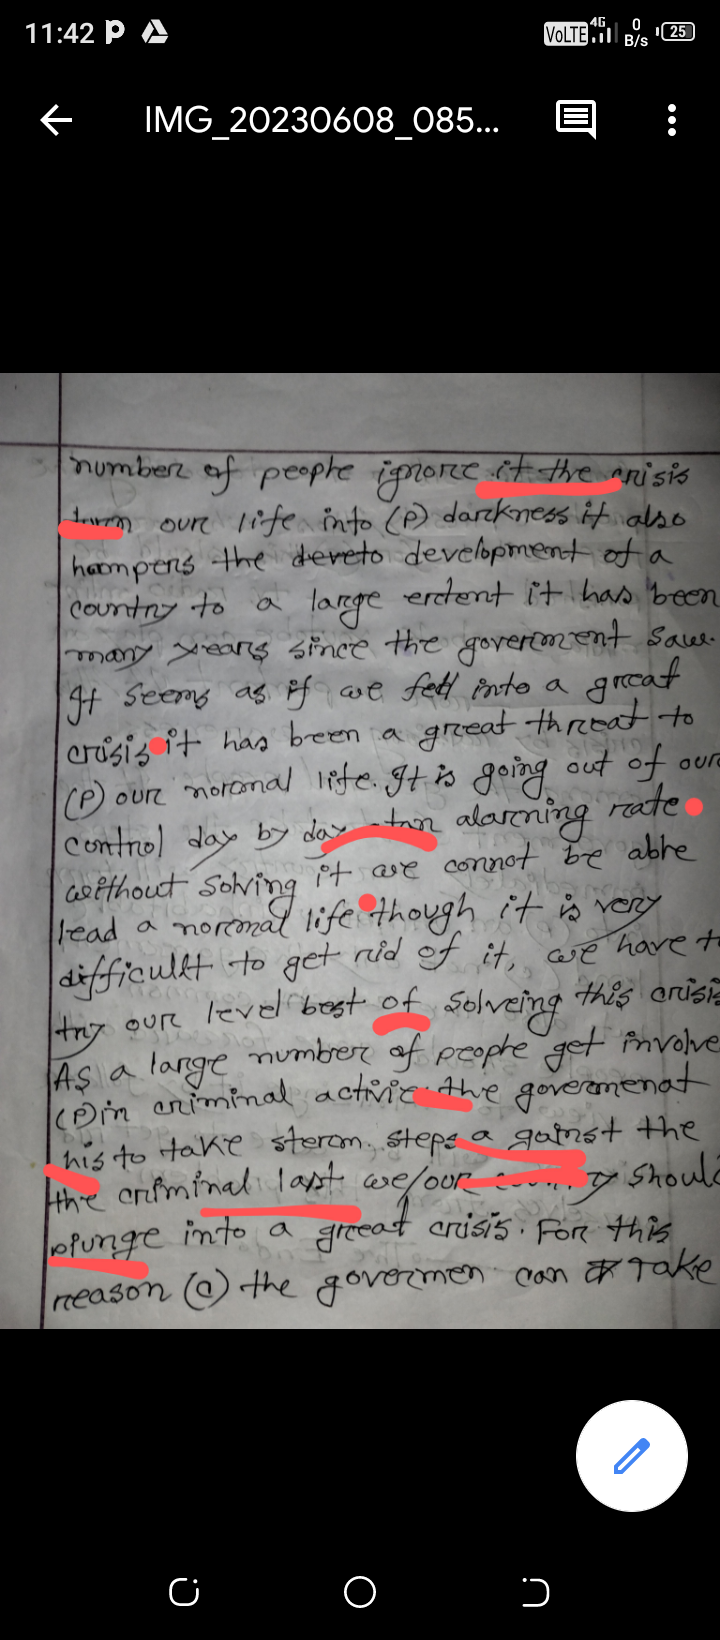 11:42
VoLTE 4G 0 B/s 25
IMG_20230608_085...
number of people ignore it the crisis
turn our life into (P) darkness it also
hampers the deveto development of a
country to a large extent it has been
many years since the goverment saw.
It seems as if we fell into a great
crisis it has been a great threat to
(P) our normal life. It is going out of our
control day by day alarming rate
without solving it we connot be able
lead a normal life though it is very
difficullt to get rid of it, we have to
try our level best of solveing this crisis
As a large number of people get involve
(P) in criminal activie the govermenat
his to take sterm steps a gainst the
the criminal last we/our should
plunge into a great crisis. For this
reason (a) the govermen can take